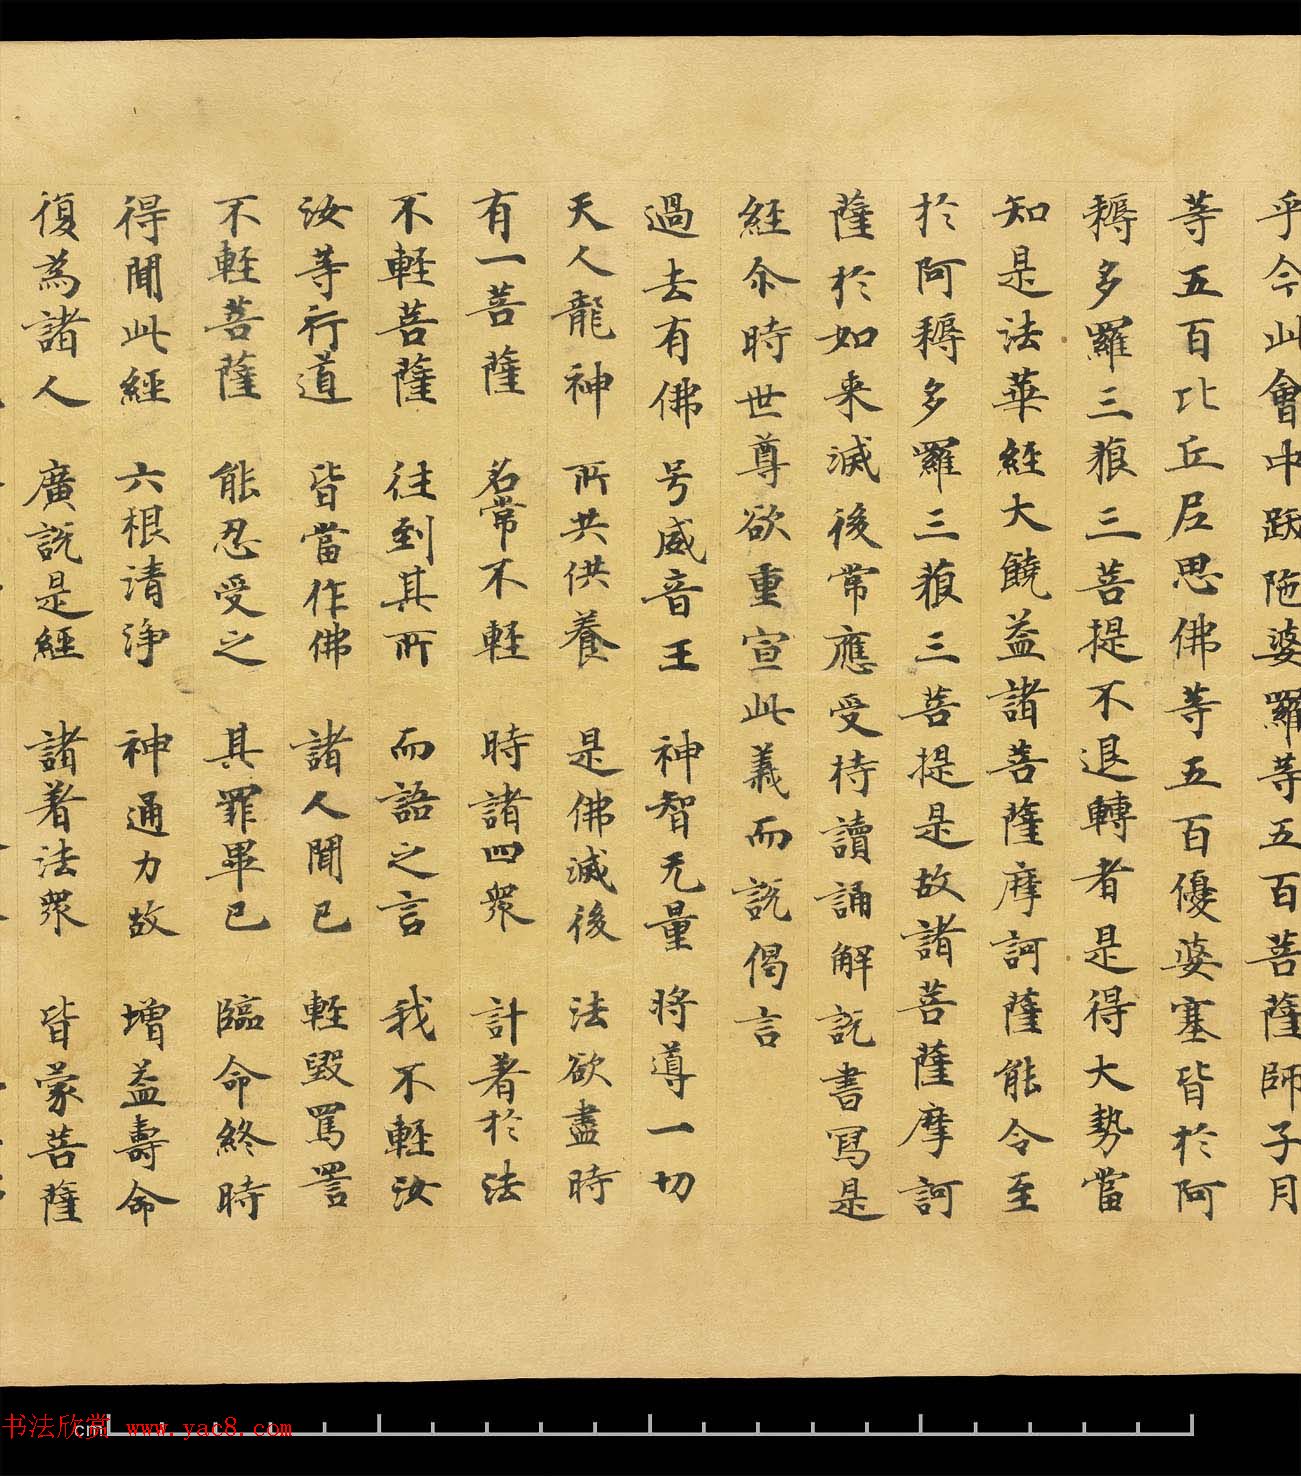 乎今此會中跋陁婆羅等五百菩薩師子月
等五百比丘尼思佛等五百優婆塞皆於阿
耨多羅三藐三菩提不退轉者是得大勢當
知是法華經大饒益諸菩薩摩訶薩能令至
於阿耨多羅三藐三菩提是故諸菩薩摩訶
薩於如来滅後常應受持讀誦解說書寫是
經尒時世尊欲重宣此義而說偈言
過去有佛 号威音王 神智无量 将導一切
天人龍神 所共供養 是佛滅後 法欲盡時
有一菩薩 名常不輕 時諸四衆 計著於法
不輕菩薩 往到其所 而語之言 我不輕汝
汝等行道 皆當作佛 諸人聞已 輕毀罵詈
不輕菩薩 能忍受之 其罪畢已 臨命終時
得聞此經 六根清淨 神通力故 增益壽命
復為諸人 廣說是經 諸著法衆 皆蒙菩薩
书法欣赏 www.yac8.com
cm